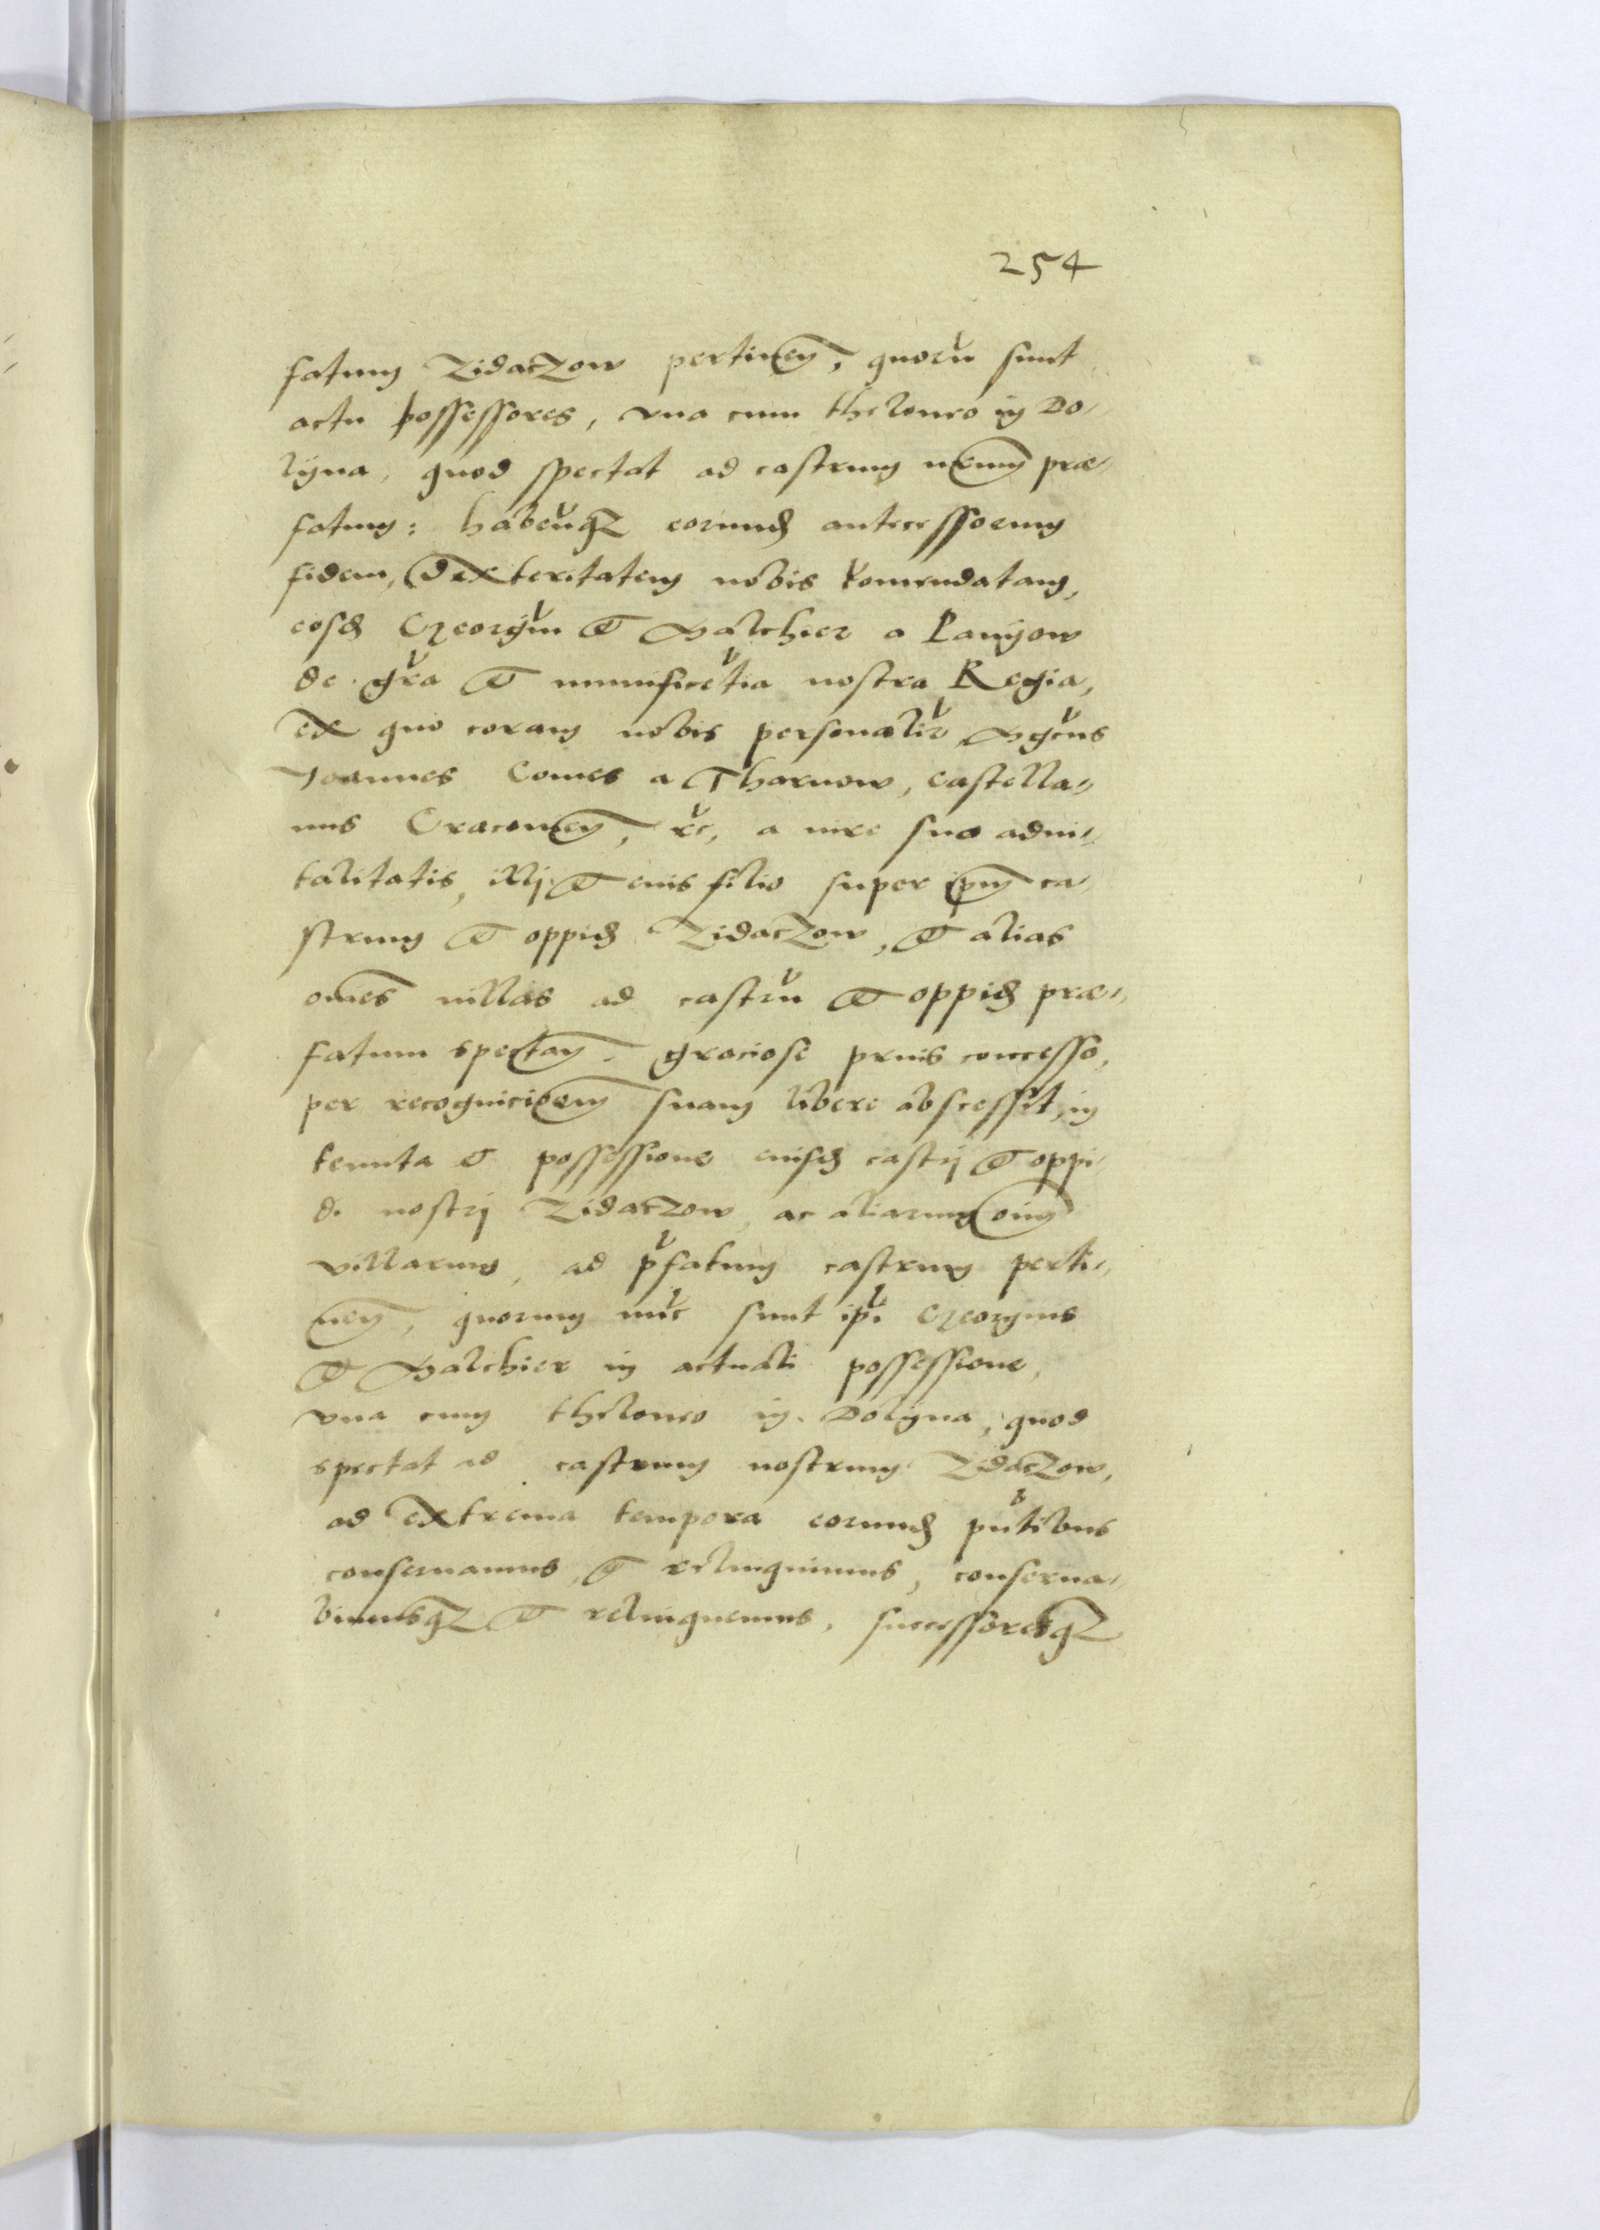 254
fatum Zidaczow pertinen, quoru sunt
actu possessores, vna cum theloneo in Do-
lyna, quod spectat ad castrum nrum præ-
fatum: habeñqz eorund antecessorum
fidem, dexteritatem nobis comendatam,
eosd Georgiu et Malchier a Lanyow
de gra et munificetia nostra Regia,
ex quo coram nobis personalir Mgcus
Joannes Comes a Tharnow, castella-
nus Cracovien, etc, a iure suo advi-
talitatis, illi et eius filio super ipm ca-
strum et oppid Zidaczow, et alias
omes villas ad castru et oppid præ-
fatum spectan. graciose prius concesso,
per recognicioem suam libere abscessit, in
tenuta et possessione eiusd castri et oppi-
di nostri Zidaczow, ac aliarum oim
villarum, ad pfatum castrum perti-
nen, quorum nuc sunt ipi Georgius
et Malchier in actuali possessione,
vna cum theloneo in Dolyna, quod
spectat ad castrum nostrum Zidaczow,
ad extrema tempora eorund pntibus
conservamus, et relinquimus, conserva-
bimusqz et relinquemus, successoresqz